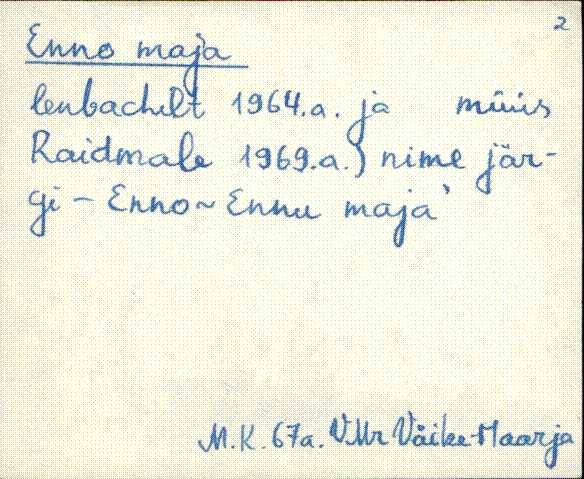 2
Enno maja
lenbachilt 1964.a. ja müüs
Raidmale 1969.a.) nime jär-
gi - Enno ~ Ennu maja'
M.K. 67a. VMr Väike-Maarja